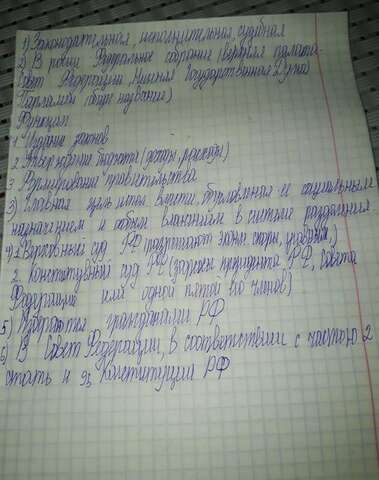 1) Законодательная, исполнительная, судебная
2) В России Федеральное собрание (верхняя палата-
Совет Федерации Нижняя Государственная Дума)
Парламент (общее название)
Функции
1 Издание законов
2 Утверждение бюджета (доходы, расходы)
3 Формирование правительства
3) Главная цель этой власти, обусловленная её социальным
назначением и общим влиянием в системе разделения
4) Верховный суд РФ (разрешают эконм. споры, уголовн.)
2 Конституционный суд РФ (запросы президента РФ, Совета
Федерации или одной пятой его членов)
5) Избираются гражданами РФ
6) В Совет Федерации, в соответствии с частью 2
стать и 95 Конституции РФ